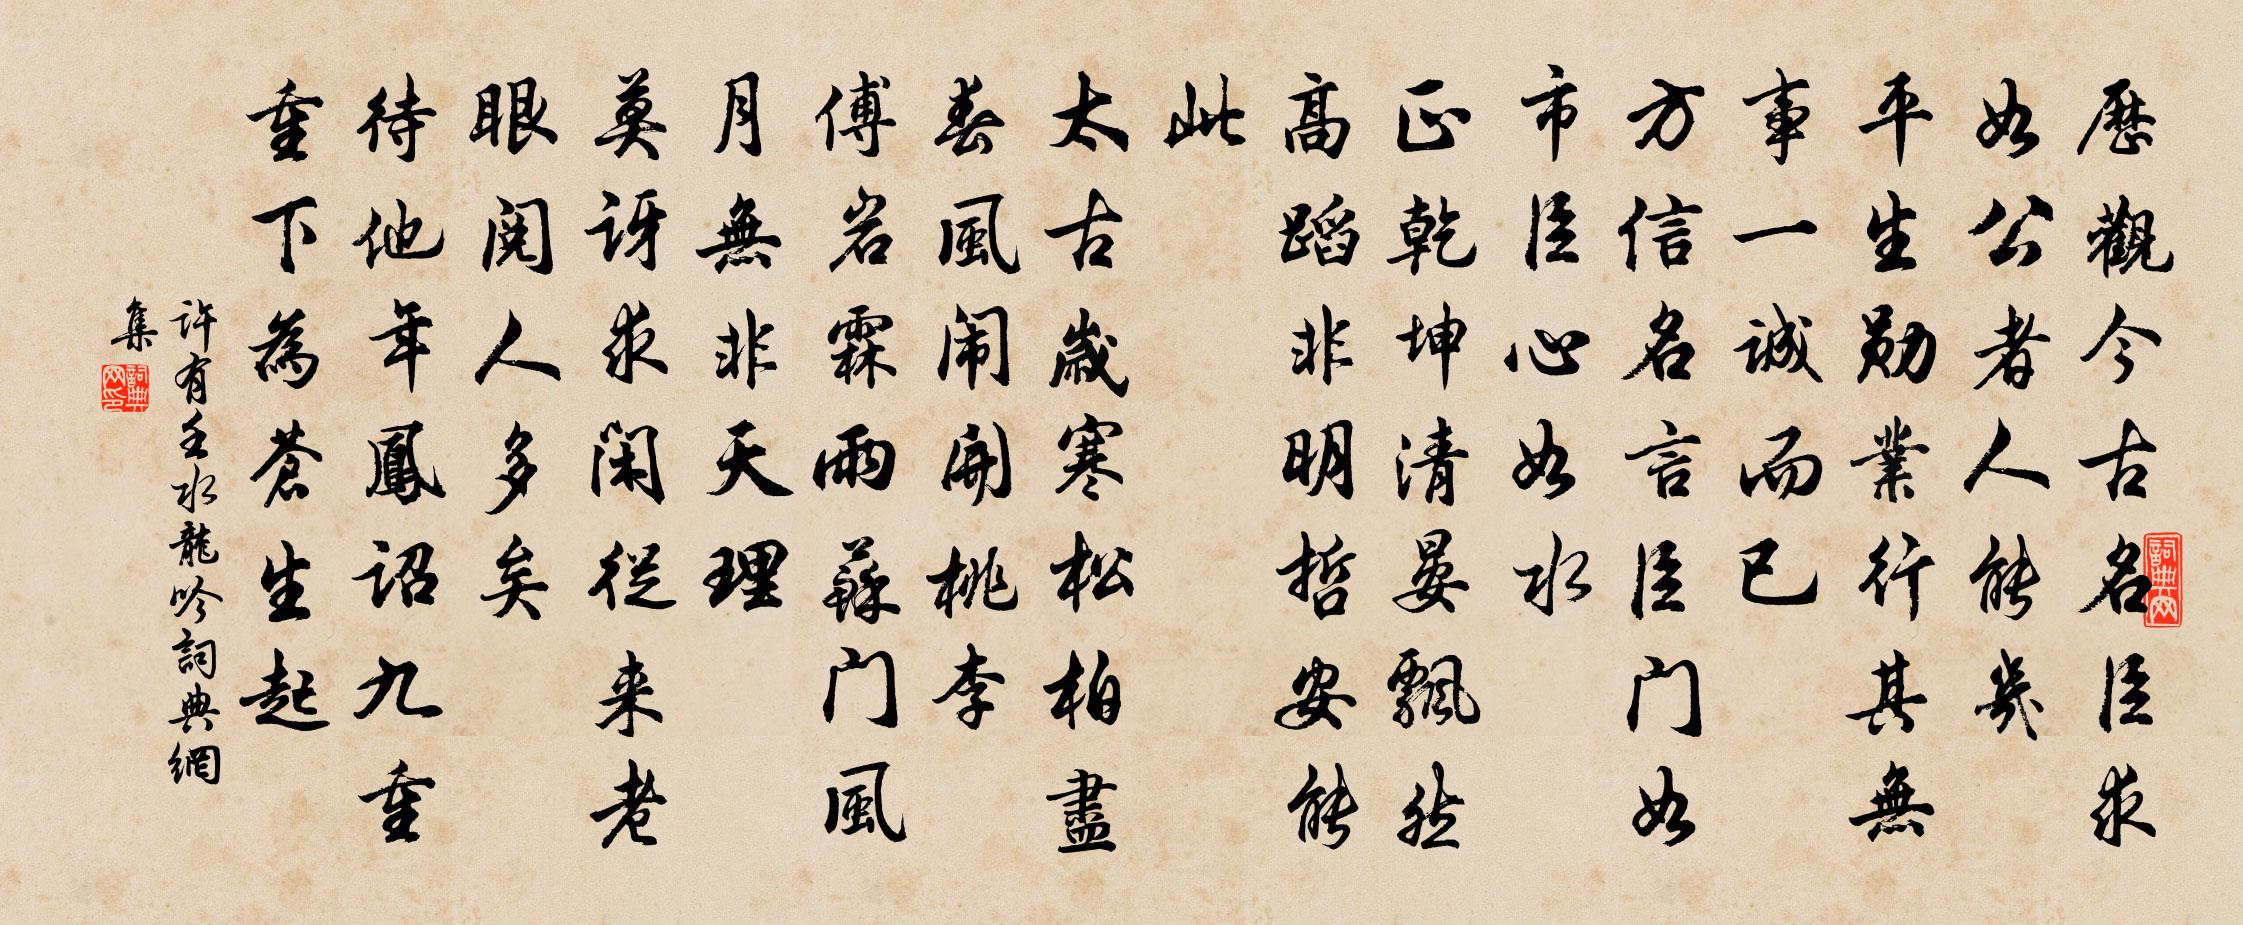 歷觀今古名臣求
如公者人能幾
平生勛業行其無
事一誠而已
方信名言臣门如
市臣心如水
正乾坤清晏飄然
高蹈非明哲安能
此
太古歲寒松柏盡
春風闹開桃李
傅岩霖雨蘇门風
月無非天理
莫訝求閑從来老
眼閱人多矣
待他年鳳詔九重
重下為蒼生起
許有壬水龍吟詞典網
集
詞典网印
詞典网